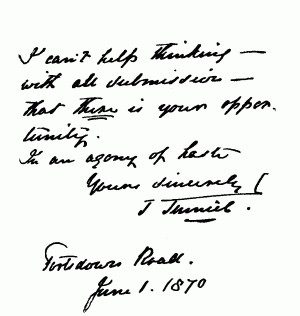 I can't help thinking —
with all submission —
that there is your oppor-
tunity.
In an agony of haste
Yours sincerely
J Tenniel.
Portsdown Road.
June 1. 1870